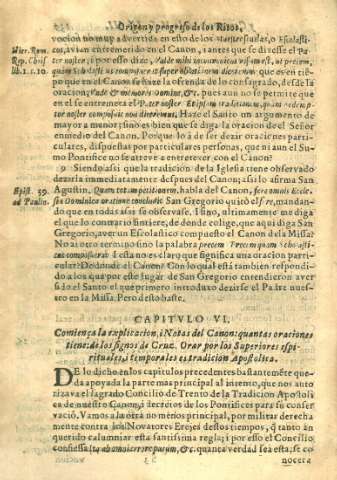 Origen y progreso de los Ritos
vocion no muy advertida en esto de los
ticos, avian entremerido en el Canon, i antes que se dixesse el Pa
ter noster; i por esso dize, Valde mihi
quam Scholasticus composuisset super oblationem diceremus que en tien
po que en el Canon se haze la ofrenda de lo consagrado, se dexa la
oracion; Vade & memoris Domine, &c. pues aun no se permite que
en el se entremeta el Pater noster. Et ipsam traditionem, quam Redemp
tor noster composuit non diceremus. Haze el Santo un argumento de
mayor a menor; sino es bien que se diga la oracion del Señor
en medio del Canon. Porque lo à de ser dezir oraciones parti-
culares, dispuestas por particulares personas, que ni aun el Su-
mo Pontifice no se atreve a entretexer con el Canon?
9 Siendo assi que la tradicion de la Iglesia tiene observado
dezirla immediatamente despues del Canon; assi lo afirma San
Agustin, habla del Canon, fere omnis Eccle-
sia Dominica oratione concludit. San Gregorio quitò el fere, mandan-
do que en todas assi se observase. I sino, ultimamente me diga
el que lo contrario sintiere, de donde colige, que aqui diga San
Gregorio, aver un Escolastico compuesto el Canon de la Missa?
No ai otro termino sino la palabra precem Precem quam Scholasti-
cus composuerat i esta no es claro que significa una oracion parti-
cular? De donde el Canon? Con lo qual està tambien respondi-
do a los que por este lugar de San Gregorio entendieron aver si-
do el Santo el que primero introduxo dezirse el Padre nues-
tro en la Missa. Pero desto baste.
Hier. Rom.
Rep. Chris.
lib. 1. c. 10.
Epist. 59.
ad Paulin.
CAPITVLO VI.
Comiença la explicacion, i Notas del Canon: quantas oraciones
tiene: de los signos de Cruz. Orar por los Superiores espi-
rituales, i temporales es tradicion Apostolica.
DE lo dicho en los capitulos precedentes bastantemẽte que-
da apoyada la parte mas principal al intento, que nos auto
riza el sagrado Concilio de Trento de la Tradicion Apostoli
ca de nuestro Canon, i decretos de los Pontifices para su conser-
vacion. Vamos a la otra no menos principal, por militar derecha
mente contra los Novatores Erejes destos tiempos, q̃ tanto an
querido calumniar esta santissima regla; i por esso el Concilio
confiessa, &c. quanta verdad sea esta, se co
nocera